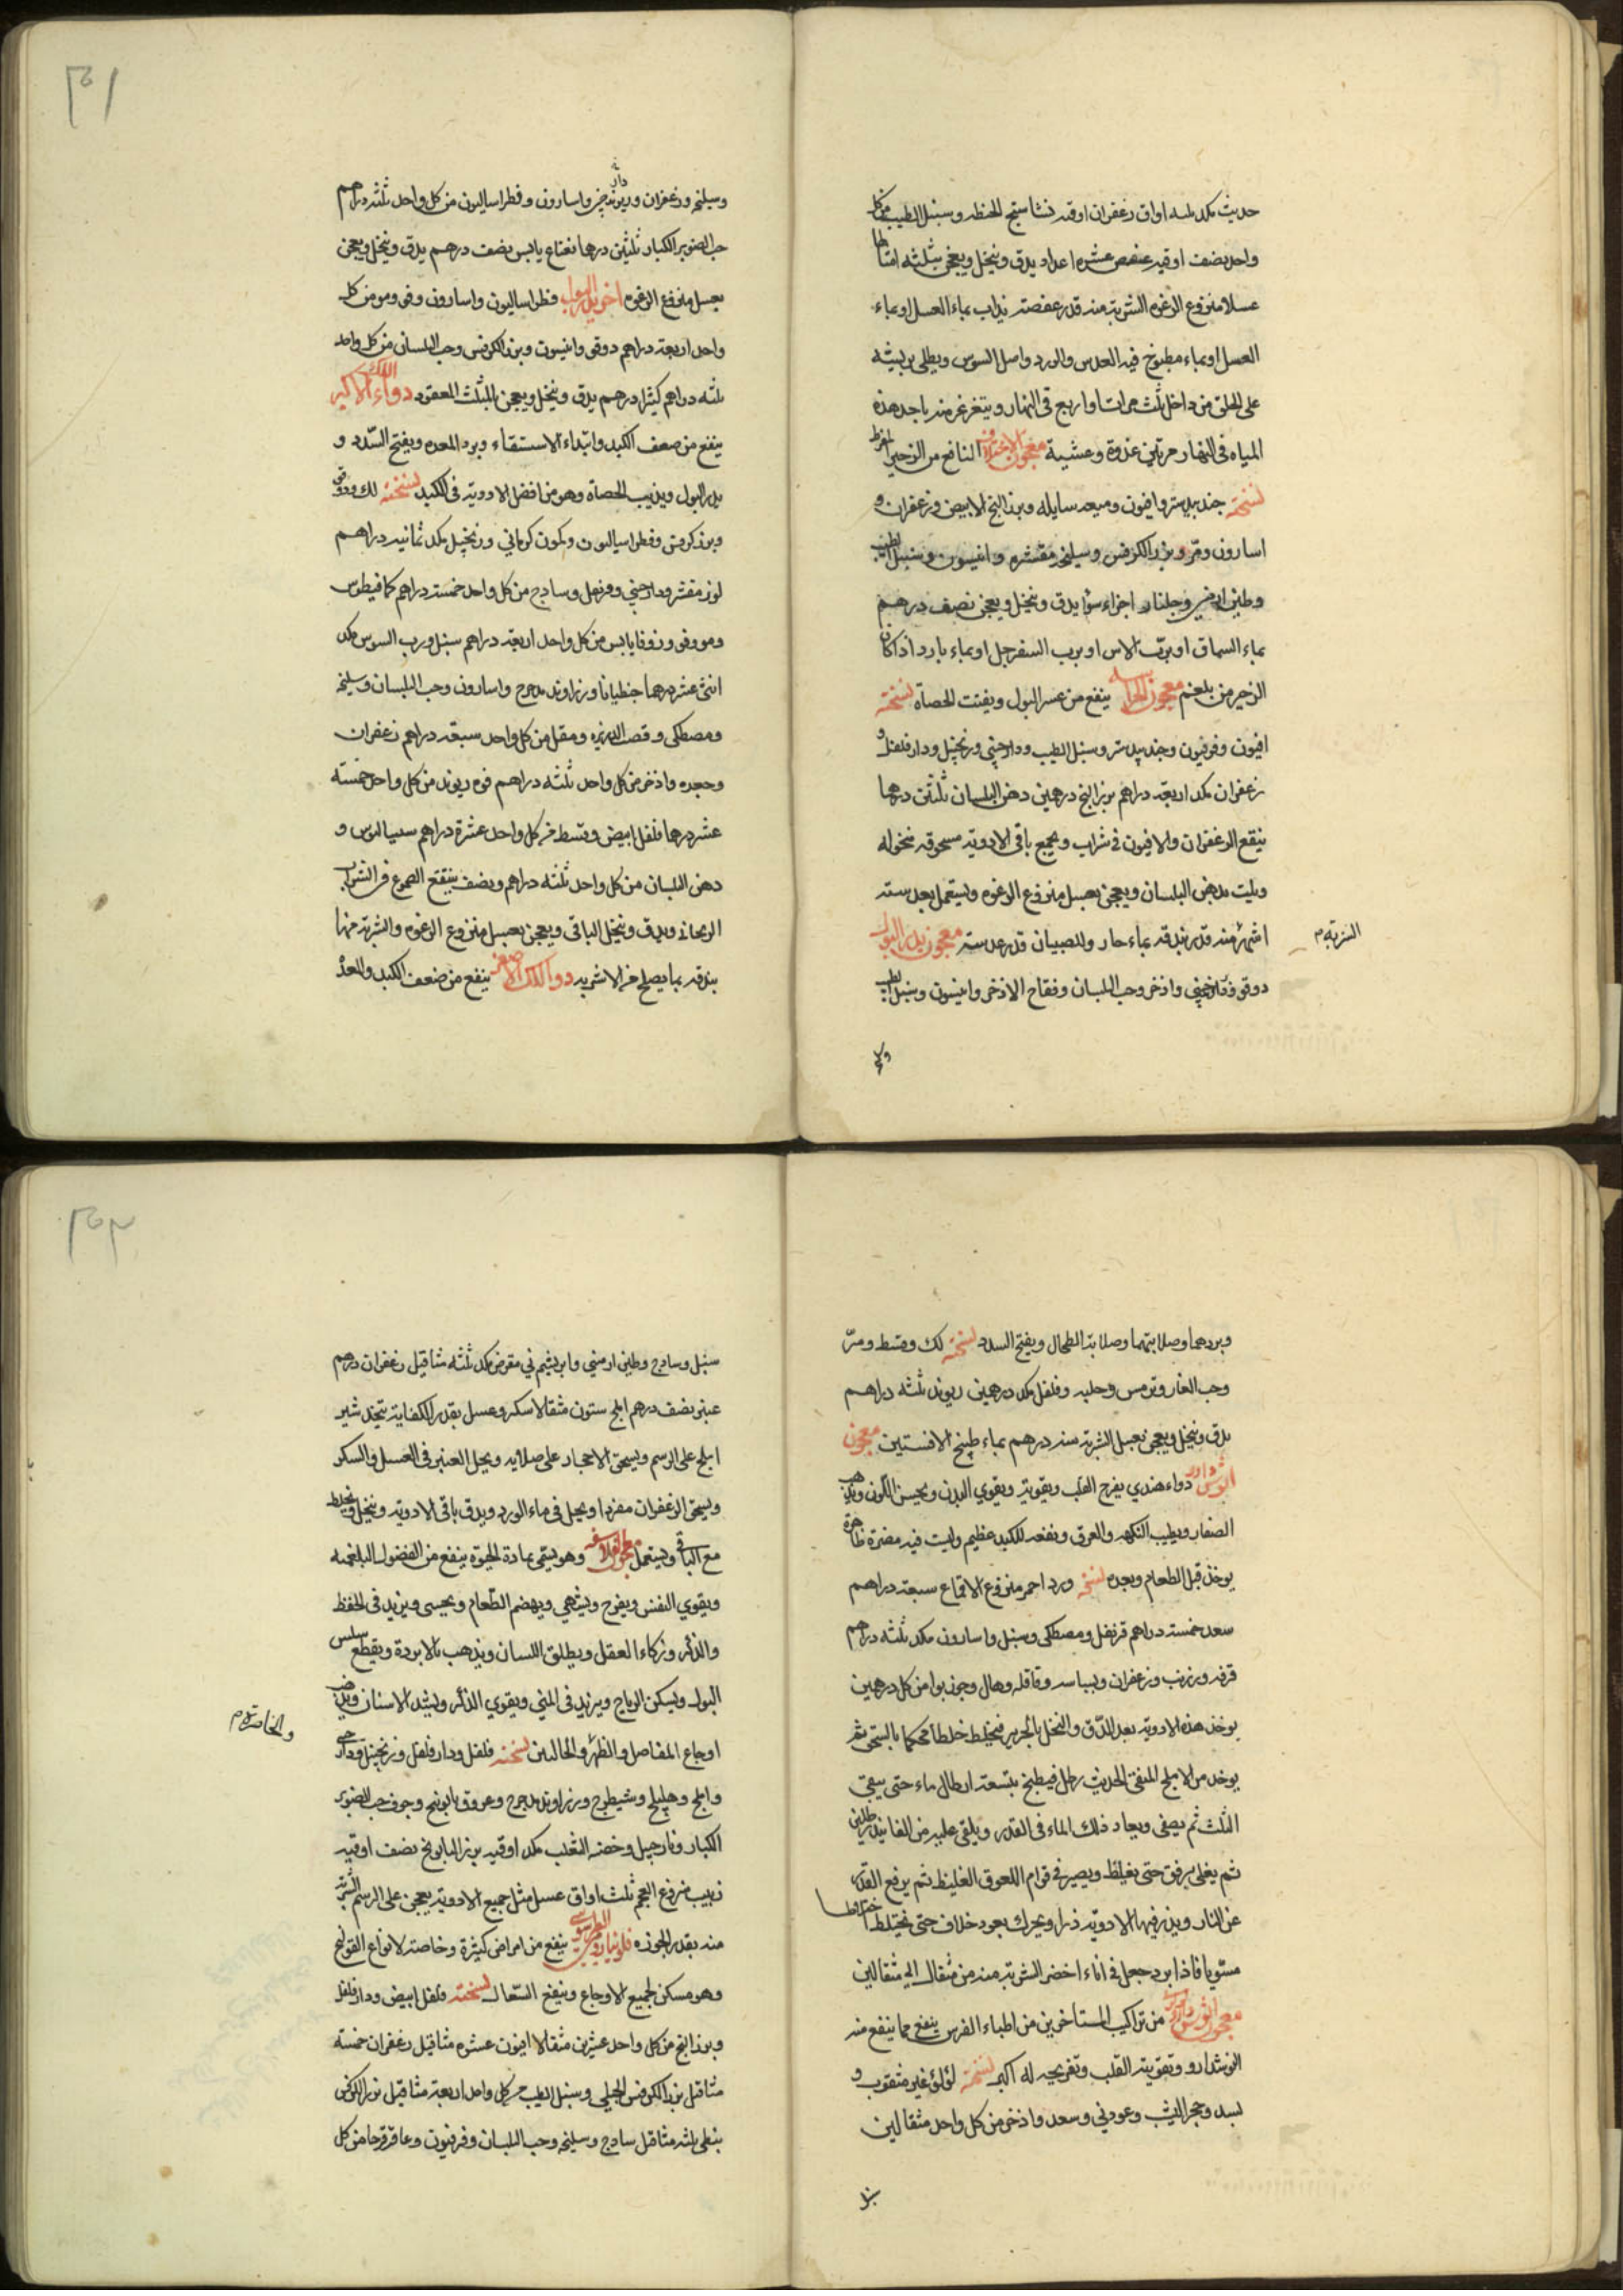 حديث مكد ثلثه اواق زعفران اوقيه نشاستج الحنطه وسنبل الطيب من كل
واحد نصف اوقيه عفص عشره اعداد يدق وينخل ويعجن بثلثه امثالها
عسلا منزوع الرغوه الشربة منه قدر عفصة يذاب بماء العسل او بماء
العسل او بماء مطبوخ فيه العدس والورد واصل السوس ويطلى بريشه
على الحلق من داخل ثلث مرات او اربع فى النهار ويتغرغر منه باحد هذه
المياه فى النهار مرتين غدوة وعشية معجون النافع من الزحير المفرط
نسخته جندبيدستر وافيون وميعه سايله وبزر البنج الابيض وزعفران و
اسارون ومر وبزر الكرفس وسليخه مقشره وانيسون وسنبل الطيب
وطين ارمني وجلنار اجزاء سوا يدق وينخل ويعجن نصف درهم
بماء السماق او برب الاس او برب السفرجل او بماء بارد اذا كان
الزحير من بلغم معجون ينفع من عسر البول ويفتت الحصاة نسخته
افيون وفربيون وجندبيدستر وسنبل الطيب ودارچيني وزنجبيل ودارفلفل و
زعفران مكد اربعة دراهم بزر البنج درهمين دهن البلسان ثلثين درهما
ينقع الزعفران والافيون فى شراب ويجمع باقى الادوية مسحوقه منخوله
ويلت بدهن البلسان ويعجن بعسل منزوع الرغوه ويستعمل بعد ستة
اشهر منه قدر بندقه بماء حار وللصبيان قدر عدسة معجون يدر البول
الشربة م
دوقو ودارچيني واذخر وحب البلسان وفقاح الاذخر وانيسون وسنبل الطيب
وسليخه وزعفران وريوند چيني واسارون وفطراساليون من كل واحد ثلثه دراهم
حب الصنوبر الكبار ثلثين درهما نعناع يابس نصف درهم يدق وينخل ويعجن
بعسل منزوع الرغوه اخر يدر البول فطراساليون واسارون وفو ومو من كل
واحد اربعة دراهم دوقو وانيسون وبزر الكرفس وحب البلسان من كل واحد
ثلثه دراهم كثيرا درهم يدق وينخل ويعجن بالمثلث المعقود دواء اللك الاكبر
ينفع من ضعف الكبد وابتداء الاستسقاء وبرد المعده ويفتح السدد و
يدر البول ويذيب الحصاة وهو من افضل الادوية فى الكبد نسخته لك ودوقو
وبزر كرفس وفطراساليون وكمون كرماني وزنجبيل مكد ثمانيه دراهم
لوز مقشر ودارچيني وقرنفل وسادج من كل واحد خمسة دراهم كمافيطوس
ومو وفو وزوفا يابس من كل واحد اربعة دراهم سنبل ورب السوس مكد
اثنى عشر درهما جنطيانا وزراوند مدحرج واسارون وحب البلسان وسليخه
ومصطكى وقصب الذريره ومقل من كل واحد سبعة دراهم زعفران
وجعده واذخر من كل واحد ثلثه دراهم فوه ريوند من كل واحد خمسة
عشر درهما فلفل ابيض وقسط من كل واحد عشرة دراهم سساليوس و
دهن البلسان من كل واحد ثلثه دراهم ونصف ينقع الصموغ فى الشراب
الريحاني ويدق وينخل الباقى ويعجن بعسل منزوع الرغوه والشربة منها
بندقه بما يصلح من الاشربه دواء اللك الاصغر ينفع من ضعف الكبد والمعدة
وبردهما وصلابتهما وصلابة الطحال ويفتح السدد نسخته لك وقسط ومر
وحب الغار وترمس وحلبه وفلفل مكد درهمين ريوند ثلثه دراهم
يدق وينخل ويعجن بعسل الشربة منه درهم بماء طبيخ الافسنتين معجون
انوشدارو دواء هندي يفرح القلب ويقويه ويقوي البدن ويحسن اللون ويذهب
الصفار ويطيب النكهه والعرق ونفعه للكبد عظيم وليست فيه مضرة ظاهرة
يوخذ قبل الطعام وبعده نسخته ورد احمر منزوع الاقماع سبعة دراهم
سعد خمسة دراهم قرنفل ومصطكى وسنبل واسارون مكد ثلثه دراهم
قرفه وزرنب وزعفران وبسباسه وقاقله وهال وجوزبوا من كل درهمين
يوخذ هذه الادوية بعد الدق والنخل بالحرير فيخلط خلطا محكما بالسحق ثم
يوخذ من الاملج المنقى الحديث رطل فيطبخ بتسعة ارطال ماء حتى يبقى
الثلث ثم يصفى ويعاد ذلك الماء فى القدر ويلقى عليه من الفانيذ رطلين
ثم يغلى برفق حتى يغلظ ويصير فى قوام اللعوق الغليظ ثم يرفع القدر
عن النار ويذر فيها الادوية ذرا ويحرك بعود خلاف حتى تختلط اختلاطا
مستويا فاذا برد جعل فى اناء اخضر الشربة منه من مثقال الى مثقالين
معجون انوشدارو من تراكيب المستاخرين من اطباء الفرس ينفع مما ينفع منه
انوشدارو وتقوية القلب وتفريحه له اكبر نسخته لؤلؤ غير مثقوب و
بسد وحجر اليشب وعود ني وسعد واذخر من كل واحد مثقالين
سنبل
سنبل وسادج وطين ارمني وابريشم ني مقرض مكد ثلثه مثاقيل زعفران درهم
عنبر نصف درهم املج ستون مثقالا سكر وعسل بقدر الكفاية يتخذ شير
املج على الرسم ويسحق الاحجار على صلايه ويحل العنبر فى العسل والسكر
ويسحق الزعفران مفردا ويحل فى ماء الورد ويدق باقى الادوية وينخل ويخلط
مع الباقى ويستعمل معجون الفلاسفه وهو يسمى بمادة الحيوة ينفع من الفضول البلغميه
ويقوي النفس ويفرح ويشهي ويهضم الطعام ويحسى ويزيد فى الحفظ
والذكر وزكاء العقل ويطلق اللسان ويذهب بالابردة ويقطع سلس
البول ويسكن الرياح ويزيد فى المني ويقوي الذكر ويشد الاسنان ويذهب
والخاصرة م
اوجاع المفاصل والظهر والحالبين نسخته فلفل ودارفلفل وزنجبيل ودارچيني
واملج وهليلج وشيطرج وزراوند مدحرج وعروق بابونج وجوف حب الصنوبر
الكبار ونارجيل وخصى الثعلب مكد اوقيه بزر البابونج نصف اوقيه
زبيب منزوع العجم ثلث اواق عسل مثل جميع الادوية يعجن على الرسم الشربة
منه بقدر الجوزه فلونيا رومي الطرسوسي ينفع من امراض كثيرة وخاصته لانواع القولنج
وهو مسكن لجميع الاوجاع وينفع السعال نسخته فلفل ابيض ودارفلفل
وبزر البنج من كل واحد عشرين مثقالا افيون عشره مثاقيل زعفران خمسة
مثاقيل بزر الكرفس الجبلي وسنبل الطيب من كل واحد اربعة مثاقيل بزر الكرفس
نبطي ثلثه مثاقيل سادج وسليخه وحب البلسان وفربيون وعاقرقرحا من كل